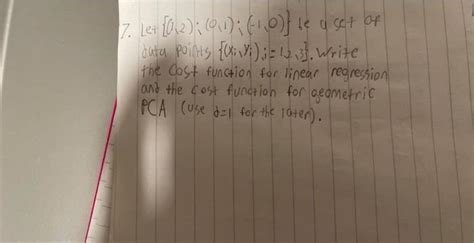 7. Let {(1,2); (0,1); (-1,0)} be a set of
data points {(xi,yi); i=1,2,3}. Write
the cost function for linear regression
and the cost function for geometric
PCA (use d=1 for the later).